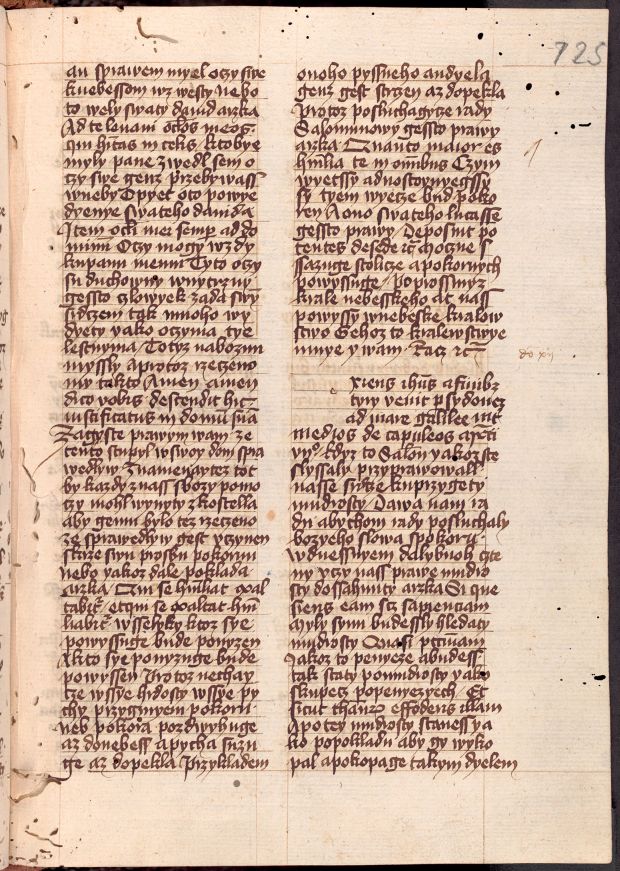 725
an sprawem myel oczy swe
k nebessom wzwesty nebo
to wely swaty dauid arzka
Ad te leuaui oculos meos
qui hitas in celis kto bye
myly pane zwedl sem o
czy swe genz przebywass
w neby Opyet oto powye
dyenye swateho dauida
Item ocli mei semper ad do
minu Oczy mogy wzdy
ku panu memu Tyto oczy
su duchowny wnytrzny
gessto czlowyek zada swy
tak mnoho wy
dyety yako oczyma tye
lestnyma Totyz naboznu
myssly a protoz rzeczeno
my takto Amen amen
dico vobis descendit hic
iustificatus in domu sua
Zagyste prawym wam ze
tento stupyl w swoy dom spra
wedlyw Znamenaytez tot
by kazdy z nass s bozy pomo
czy mohl wynyty z kostella
aby gemu bylo tez rzeczeno
ze sprawedlyw gest vczynen
skrze swu prosbu pokornu
nebo yakoz dale poklada
arzka Qui se humliat exal
tabitr etqui se exaltat hum
liabitr wsselyky ktoz sye
powyssuge bude ponyzen
A kto sye ponyzuge bude
powyssen Protoz nechay
cze wssye hrdosty wssye py
chy przygmyem pokoru
neb pokora pozdwyhuge
az do nebess a pycha
ge az do pekla Przykladem
onoho pyssneho andyela
genz gest strzen az do pekla
Protoz posluchagyce rady
Salomunowy gessto prawy
arzka Quanto maior es
humilia te in omnibus Czym
wyetssy a duostoynyegssy
sy tyem wyecze bud poko
ren A ono swateho lucasse
gessto prawy Deposuit po
tentes de sede etc Moczne s
ssazuge stolicze a pokornych
powyssuge Poprossmyz
krale nebeskeho ac nass
powyssy w nebeske kralow
stwo Gehoz to kralewstwye
 y wam Racz etc
do xij
xiens ihus a finibz
tyry venit p sydonez
ad mare galilee int
medios de capuleos arti
 Kdyz to Salon yakozste
slyssaly przyprawowall
nasse srdce ku przygyety
mudrosty Dawa nam ra
du abychom rady posluchaly
bozyeho slowa spokoru
w dnessnyem dalybuoh cite
ny yczy nass prawe mudro
sty dossahnuty arzka Si que
siens eam scz sapienciam
Myly synu budessly hledaty
mudrosty Quasi pecuniam
Jakoz to penyeze a budess
tak staty po mudrosty yako
skupecz po penyezych Et
sicut thauros effodens illam
A po tey mudrosty staness ya
ko po pokladu aby gy wyko
pal a pokopage takym dyelem